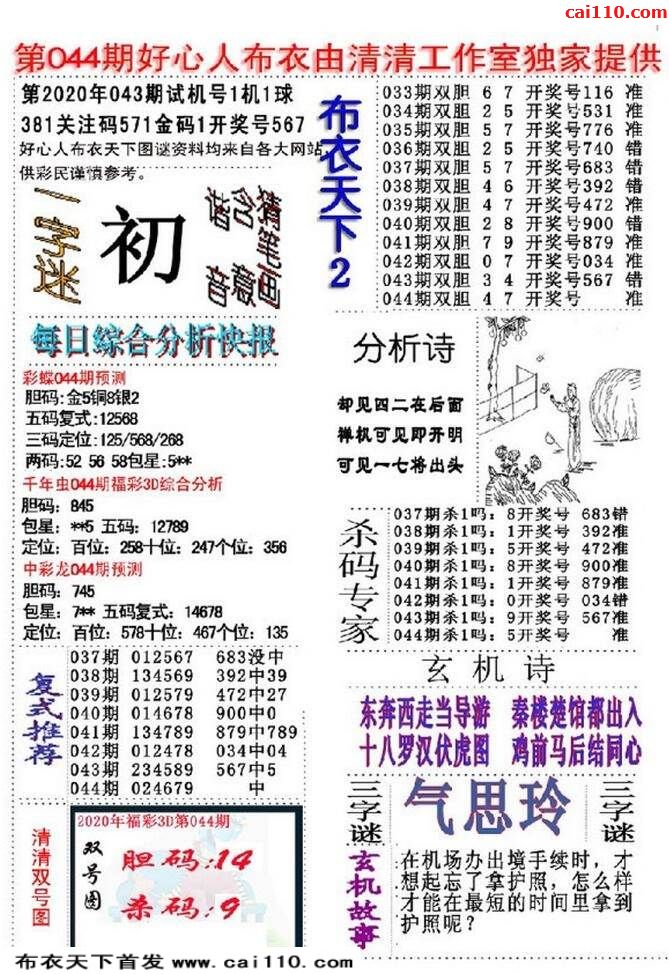 cai110.com
第044期好心人布衣由清清工作室独家提供
第2020年043期试机号1机1球
381关注码571金码1开奖号567
好心人布衣天下图谜资料均来自各大网站,
供彩民谨慎参考。
一字谜
初
猜笔画
含意
谐音
布衣天下2
033期双胆 6 7 开奖号116 准
034期双胆 2 5 开奖号531 准
035期双胆 5 7 开奖号776 准
036期双胆 2 5 开奖号740 错
037期双胆 5 7 开奖号683 错
038期双胆 4 6 开奖号392 错
039期双胆 4 7 开奖号472 准
040期双胆 2 8 开奖号900 错
041期双胆 7 9 开奖号879 准
042期双胆 0 7 开奖号034 准
043期双胆 3 4 开奖号567 错
044期双胆 4 7 开奖号 准
每日综合分析快报
彩蝶044期预测
胆码:金5铜8银2
五码复式:12568
三码定位:125/568/268
两码:52 56 58包星:5**
千年虫044期福彩3D综合分析
胆码：845
包星：**5 五码：12789
定位：百位：258十位：247个位：356
中彩龙044期预测
胆码：745
包星：7** 五码复式：14678
定位：百位：578十位：467个位：135
分析诗
却见四二在后面
禅机可见即开明
可见一七将出头
杀码专家
037期杀1吗：8开奖号 683错
038期杀1吗：1开奖号 392准
039期杀1吗：5开奖号 472准
040期杀1吗：8开奖号 900准
041期杀1吗：1开奖号 879准
042期杀1吗：0开奖号 034错
043期杀1吗：9开奖号 567准
044期杀1吗：5开奖号 准
复式推荐
037期 012567 683没中
038期 134569 392中39
039期 012579 472中27
040期 014678 900中0
041期 134789 879中789
042期 012478 034中04
043期 234589 567中5
044期 024679 中
玄机诗
东奔西走当导游 秦楼楚馆都出入
十八罗汉伏虎图 鸡前马后结同心
三字谜
气思玲
三字谜
玄机故事
在机场办出境手续时，才
想起忘了拿护照，怎么样
才能在最短的时间里拿到
护照呢？
清清双号图
2020年福彩3D第044期
双号图
胆码:14
杀码:9
布衣天下首发 www.cai110.com